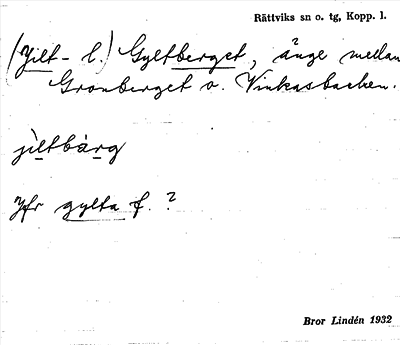 Rättviks sn o. tg, Kopp. l.
(Jilt- l.) Gyltberget, änge mellan
Gronberget o. Vinkasbacken.
jìltbàrg
Jfr gylta f. ?
Bror Lindén 1932